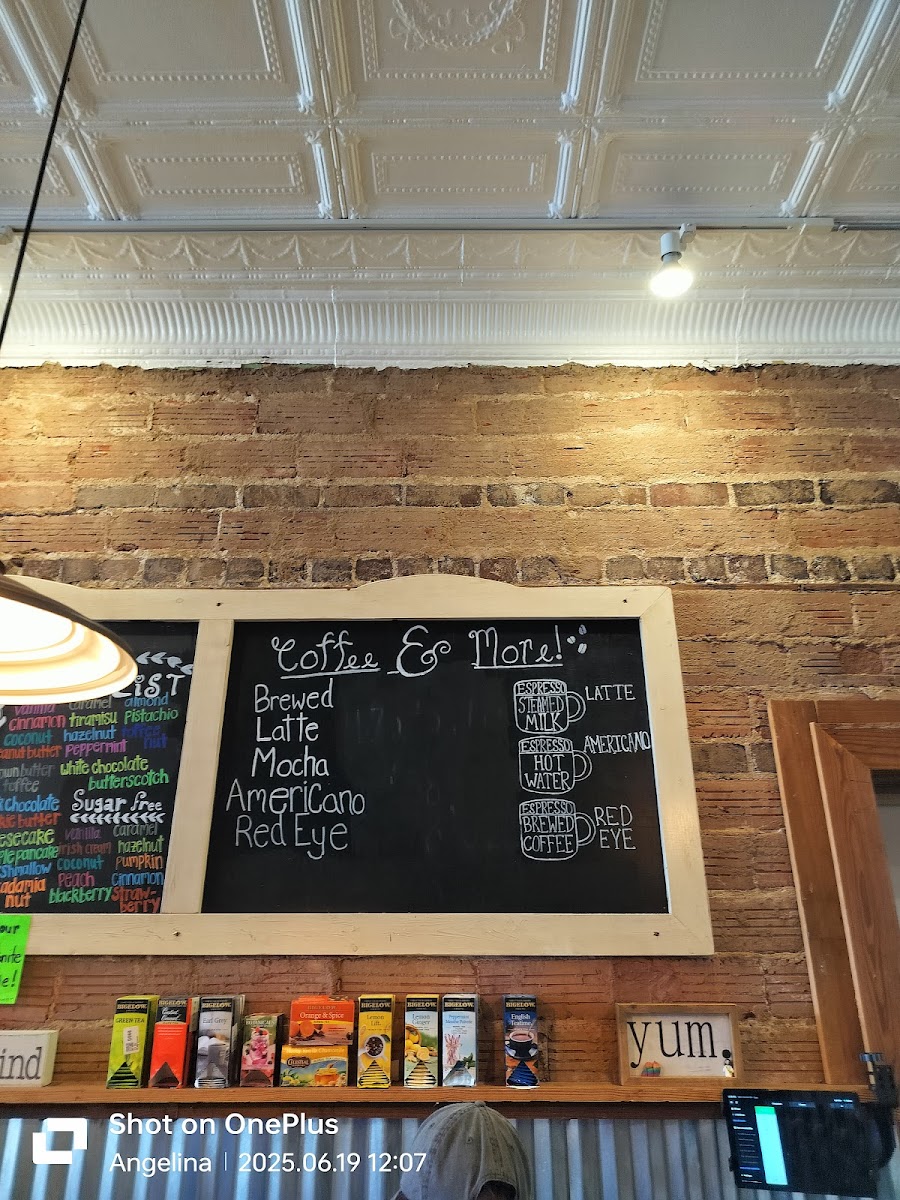 Coffee & More!
Brewed
Latte
Mocha
Americano
Red Eye
ESPRESSO
STEAMED
MILK
LATTE
ESPRESSO
HOT
WATER
AMERICANO
ESPRESSO
BREWED
COFFEE
RED
EYE
LIST
vanilla caramel almond
cinnamon tiramisu pistachio
coconut hazelnut toffee
peanut butter peppermint nut
brown butter white chocolate
toffee butterscotch
chocolate Sugar free
butter
vanilla caramel
pancake irish cream hazelnut
marshmallow coconut pumpkin
peach cinnamon
nut blackberry straw-
berry
BIGELOW
GREEN TEA
BIGELOW
BIGELOW
Earl Grey
BOTANICALS
BIGELOW
Orange & Spice
CELESTIAL
BIGELOW
Lemon
Lift
BIGELOW
Lemon
Ginger
BIGELOW
BIGELOW
English
Teatime
yum
Shot on OnePlus
Angelina | 2025.06.19 12:07